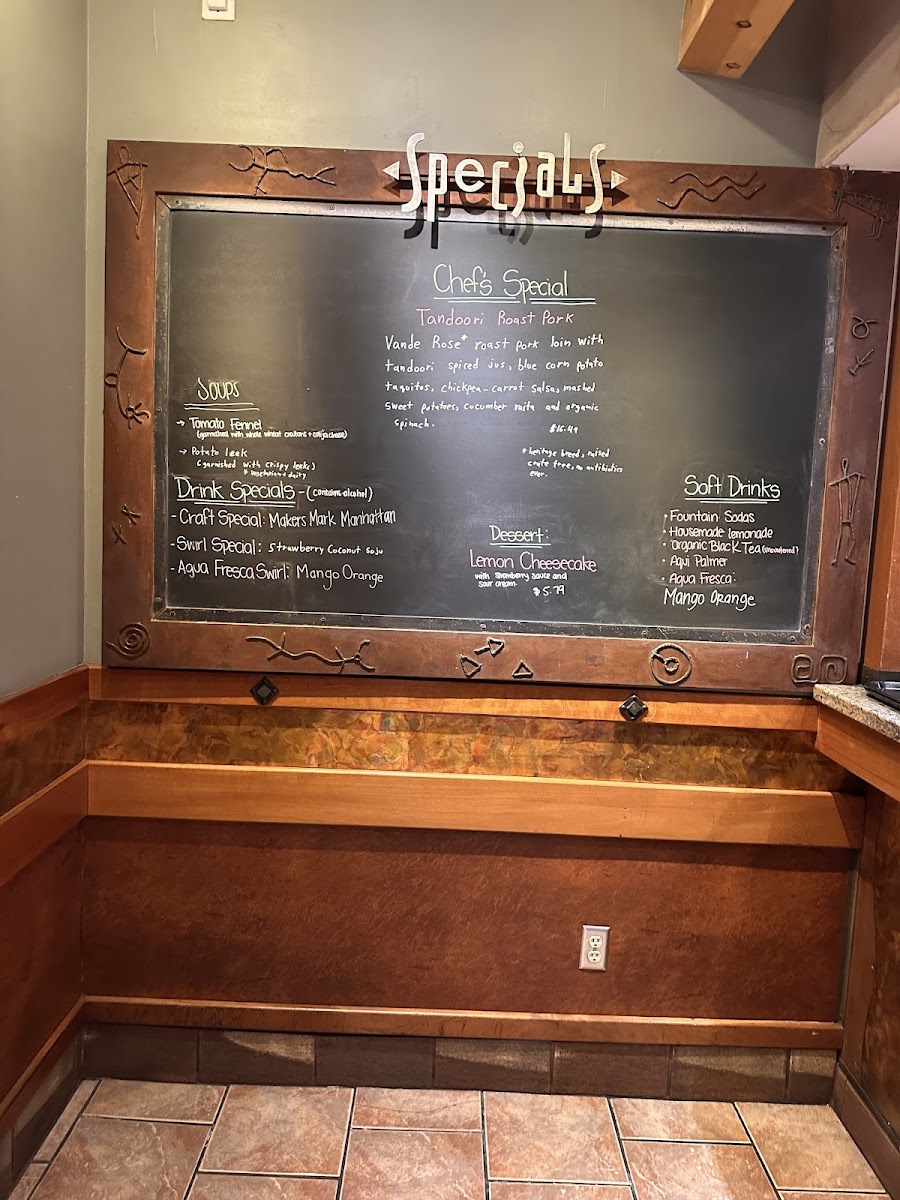 Specials
Chef's Special
Tandoori Roast Pork
Vande Rose* roast pork loin with
tandoori spiced jus, blue corn potato
taquitos, chickpea-carrot salsa, mashed
sweet potatoes, cucumber raita and organic
spinach.
$16.49
* heritage breed, raised
crate free, no antibiotics
ever.
Soups
→ Tomato Fennel
(garnished with whole wheat croutons + cotija cheese)
→ Potato leek
(garnished with crispy leeks)
* vegetarian + dairy
Drink Specials - (contains alcohol)
- Craft Special: Makers Mark Manhattan
- Swirl Special: Strawberry Coconut Soju
- Agua Fresca Swirl: Mango Orange
Dessert:
Lemon Cheesecake
with strawberry sauce and
sour cream.
$5.79
Soft Drinks
• Fountain Sodas
• Housemade lemonade
• Organic Black Tea (unsweetened)
• Aqui Palmer
• Agua Fresca:
Mango Orange